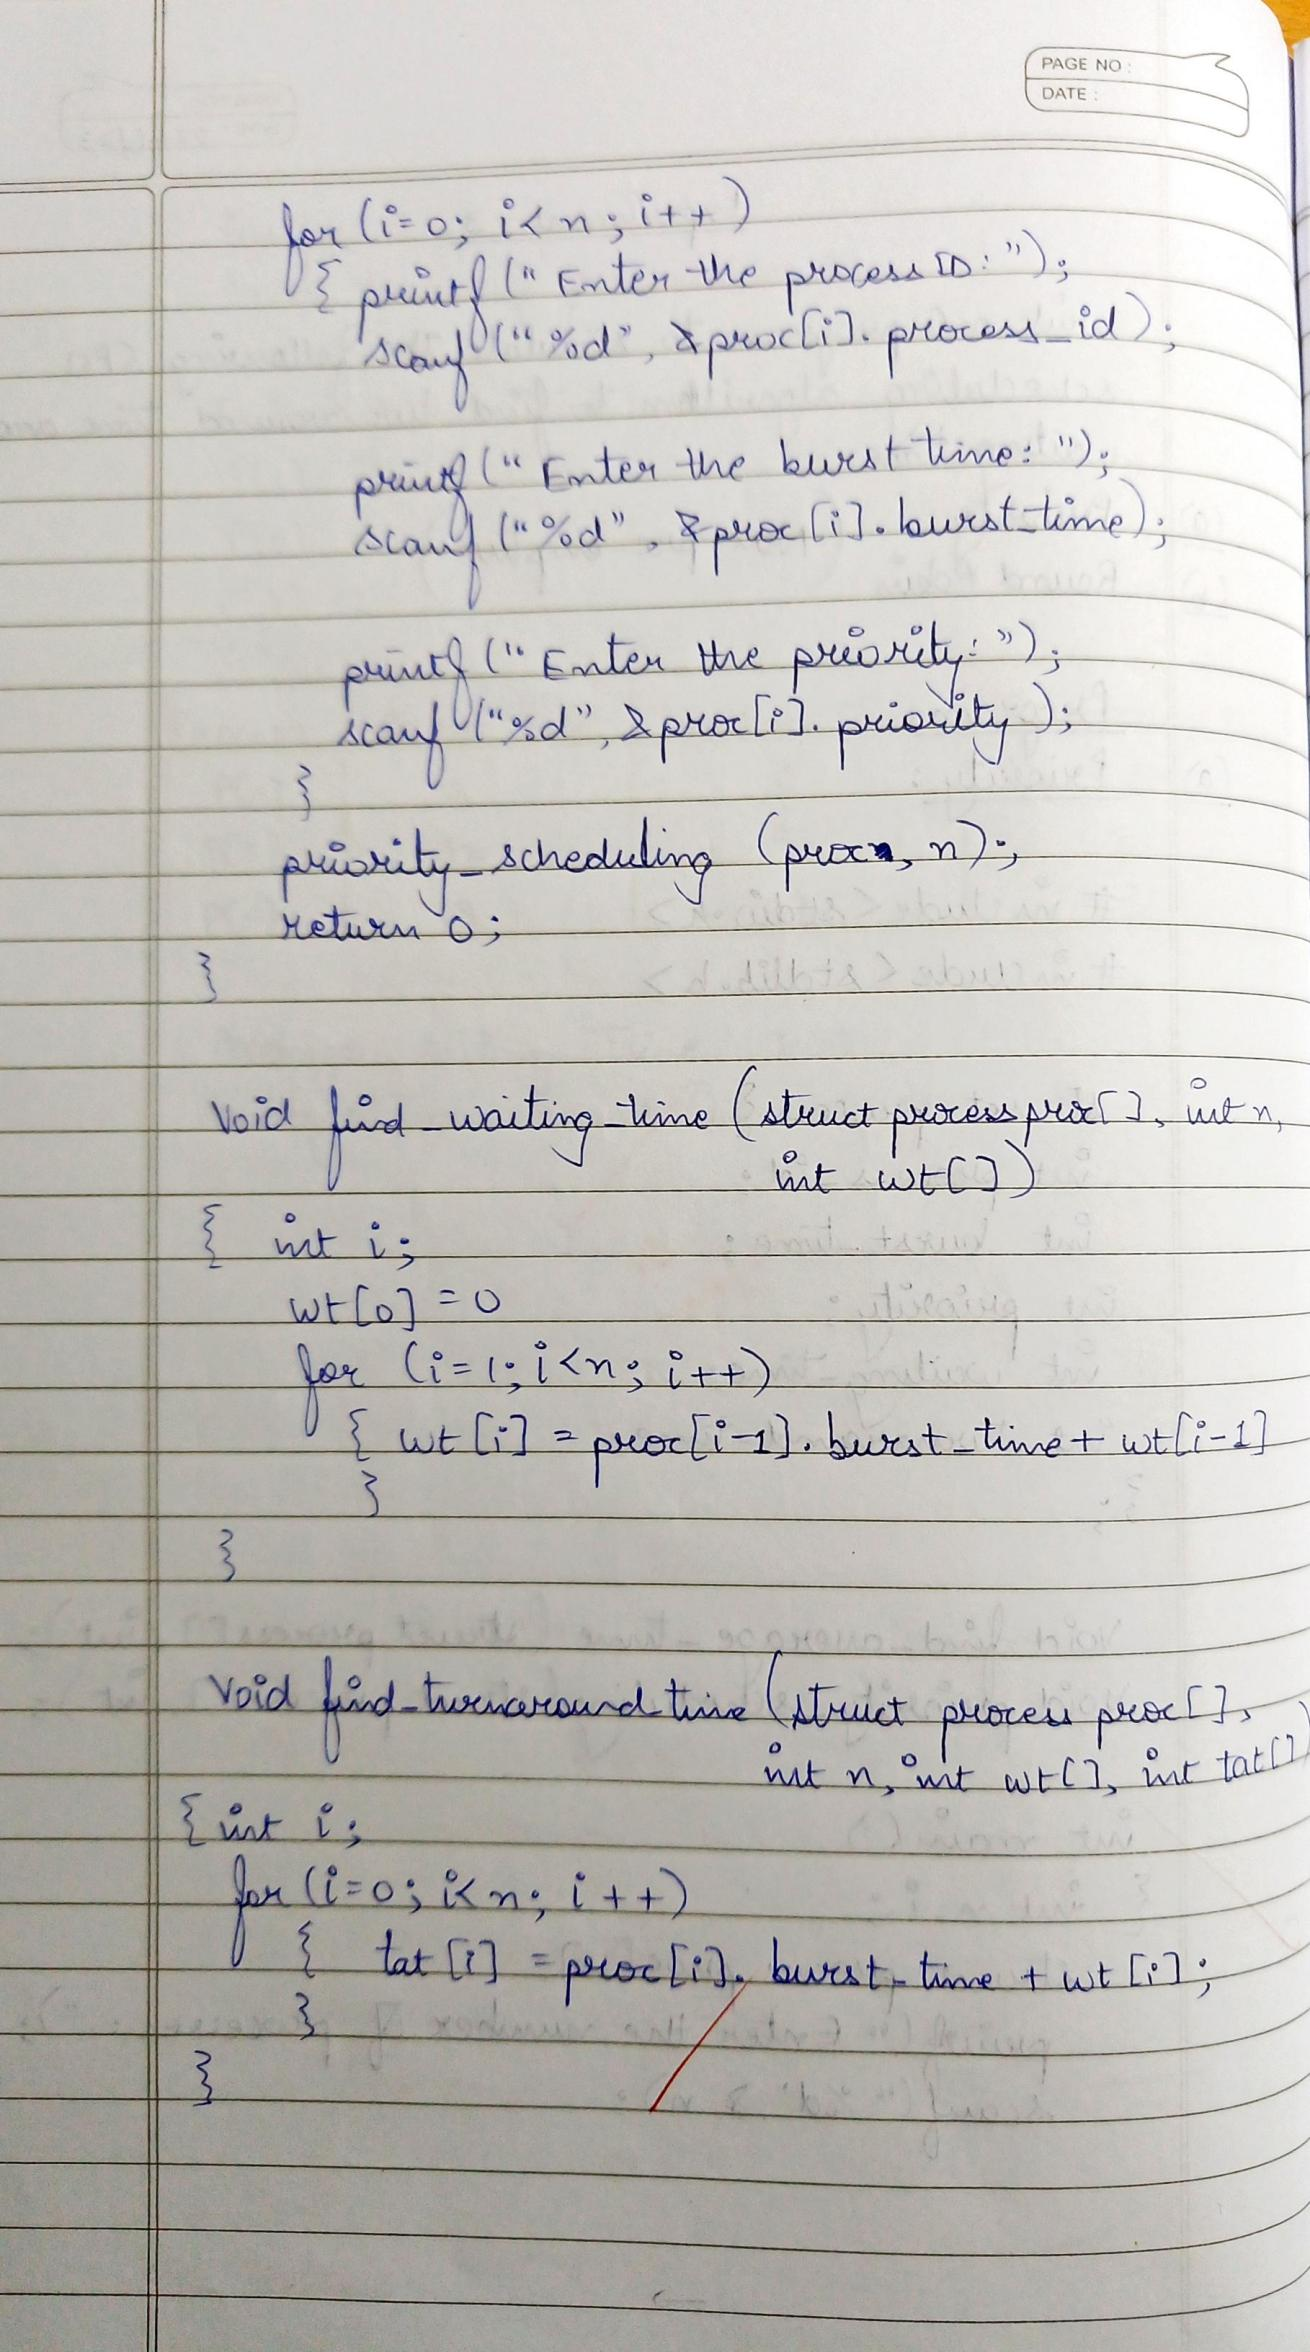 PAGE NO :
DATE :
for (i=0; i<n; i++)
{ printf (" Enter the process ID: ");
scanf ("%d", &proc[i].process_id);
printf (" Enter the burst time: ");
scanf ("%d", &proc[i].burst_time);
printf (" Enter the priority: ");
scanf ("%d", &proc[i].priority);
}
priority_scheduling (proc, n);
return 0;
}
void find_waiting_time (struct process proc[], int n,
int wt[])
{ int i;
wt[0] = 0
for (i=1; i<n; i++)
{ wt[i] = proc[i-1].burst_time + wt[i-1]
}
}
void find_turnaround_time (struct process proc[],
int n, int wt[], int tat[])
{ int i;
for (i=0; i<n; i++)
{ tat[i] = proc[i].burst_time + wt[i];
}
}